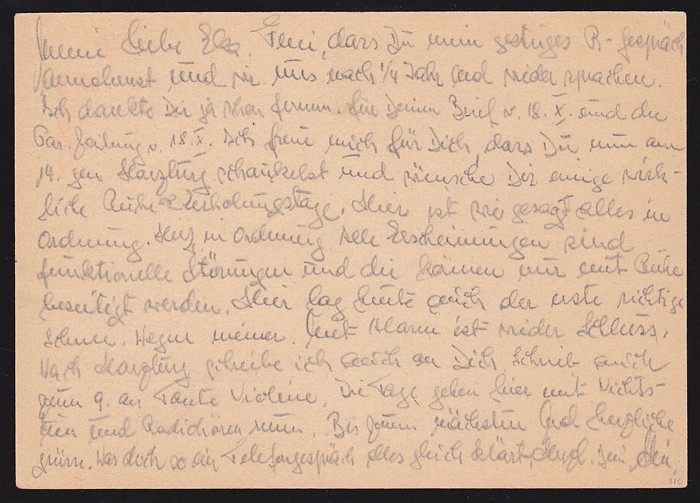 Meine liebe Elsa. Fein, dass Du mein gestriges R-Gespräch
annahmst und wir uns nach 1/4 Jahr mal wieder sprachen.
Ich dankte Dir ja schon fernm. für Deinen Brief v. 18. X. und die
Zeitung v. 18. X. Ich freue mich für Dich, dass Du nun am
14. gen Harzburg schaukelst und wünsche Dir einige wirk-
liche Ruhe & Erholungstage. Hier ist wie gesagt alles in
Ordnung. Herz in Ordnung alle Erscheinungen sind
funktionelle Störungen und die können nur mit Ruhe
beseitigt werden. Hier lag heute auch der erste richtige
Schnee. Wegen meiner. Mit Alarm ist wieder Schluss.
Nach Harzburg schreibe ich auch an Dich. Schrieb auch
zum 9. an Tante Violine. Die Tage gehen hier mit Nichts-
tun und Radiohören rum. Bis zum nächsten Mal herzliche
Grüsse. Was doch so ein Telefongespräch alles gleich klärt,